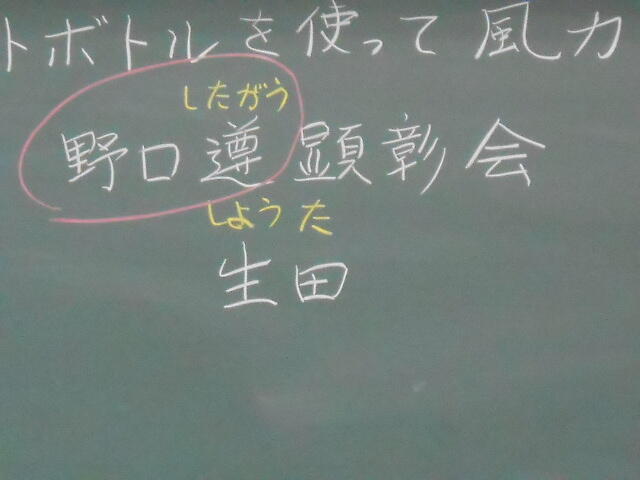 トボトルを使って風力
したがう
野口遵顕彰会
しょうた
生田